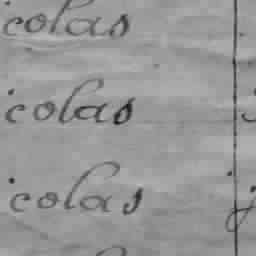 icolas
icolas
icolas